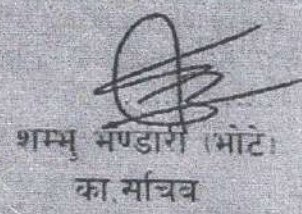 शम्भु भण्डारी (भोटे)
का.सचिव